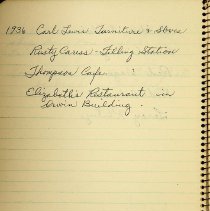 1936 Carl Lewis Furniture & Stoves
Rusty Caress - Filling Station
Thompson Cafe
Elizabeth's Restaurant in
Irwin Building.